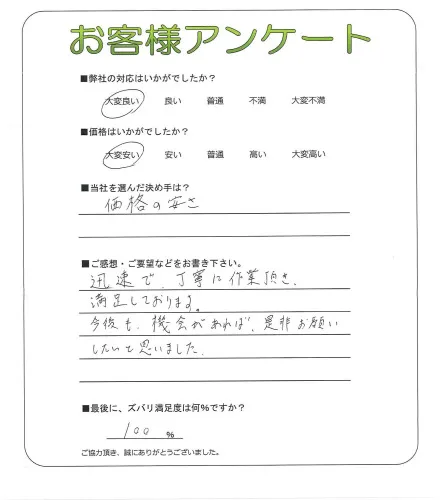 お客様アンケート
■弊社の対応はいかがでしたか?
大変良い 良い 普通 不満 大変不満
■価格はいかがでしたか?
大変安い 安い 普通 高い 大変高い
■当社を選んだ決め手は?
価格の安さ
■ご感想・ご要望などをお書き下さい。
迅速で、丁寧に作業頂き、
満足しております。
今後も、機会があれば、是非お願い
したいと思いました。
■最後に、ズバリ満足度は何%ですか?
100 %
ご協力頂き、誠にありがとうございました。